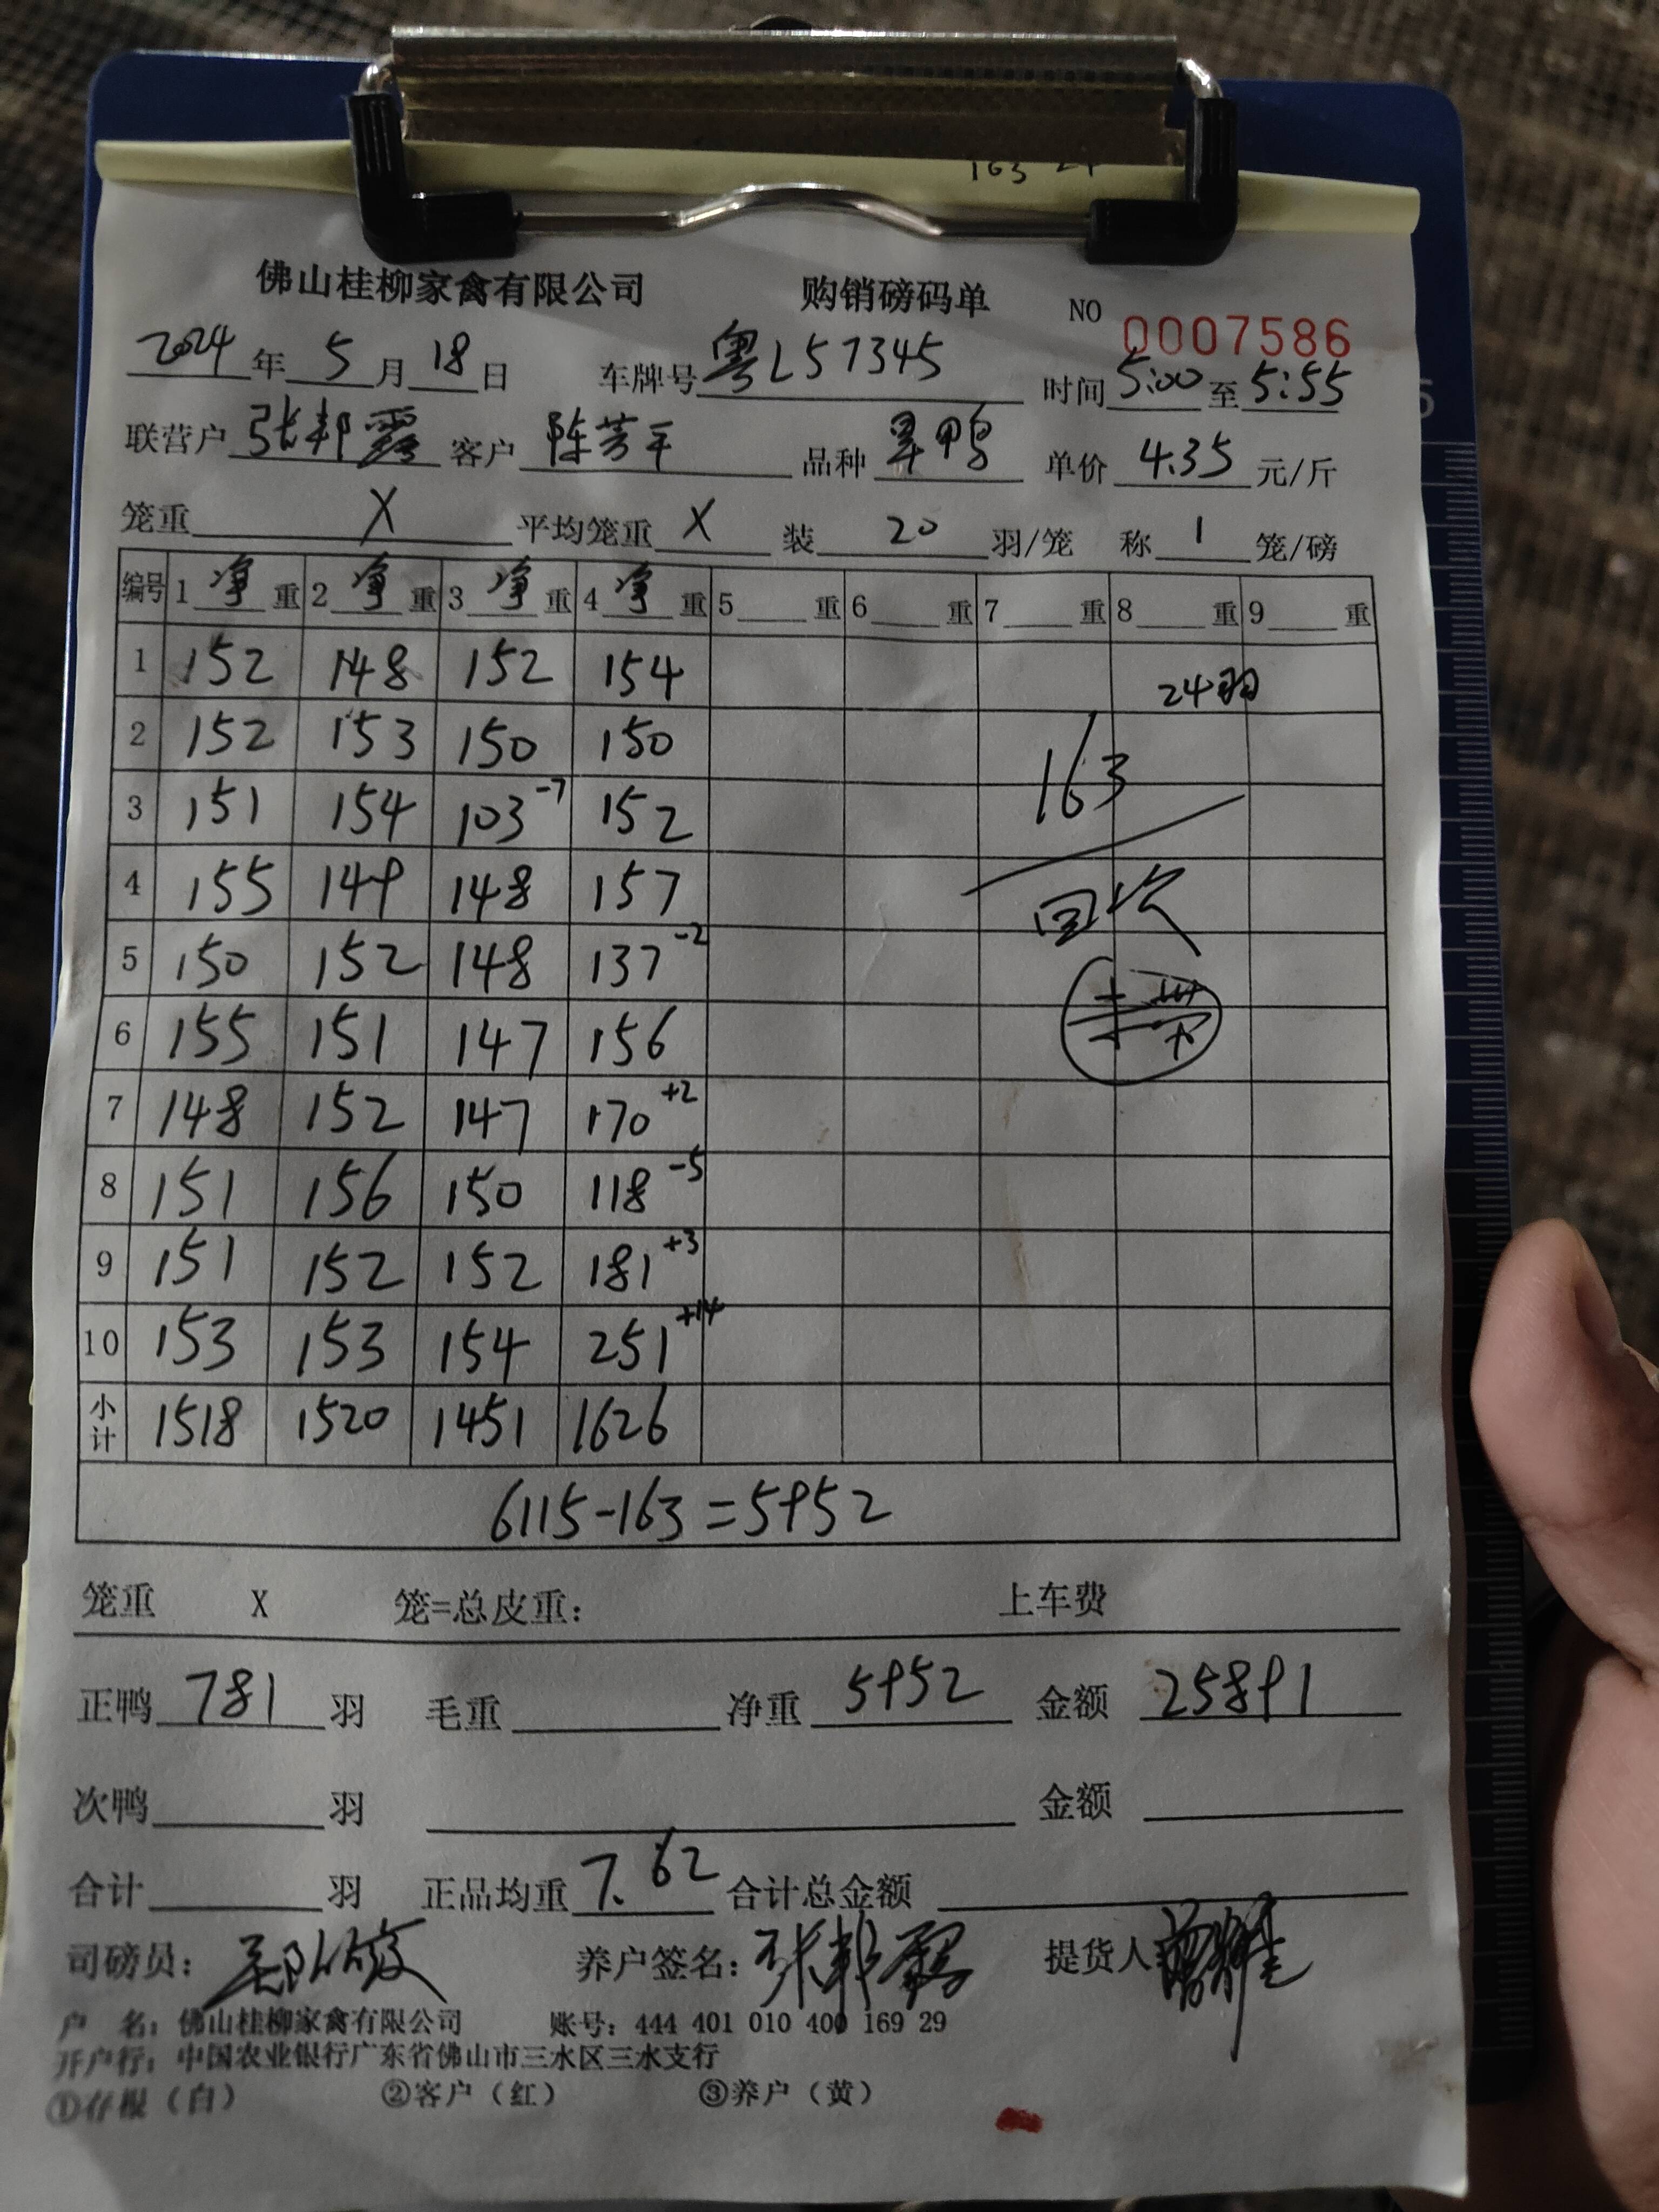 163
佛山桂柳家禽有限公司 购销磅码单 NO 0007586
2024 年 5 月 18 日 车牌号 粤L57345 时间 5:00 至 5:55
联营户 张邦露 客户 陈芳平 品种 旱鸭 单价 4.35 元/斤
笼重 X 平均笼重 X 装 20 羽/笼 称 1 笼/磅
编号 1 净 重 2 净 重 3 净 重 4 净 重 5 重 6 重 7 重 8 重 9 重
1 152 148 152 154 24羽
2 152 153 150 150 163
3 151 154 103 -7 152
4 155 149 148 157 回次
5 150 152 148 137 -2
6 155 151 147 156
7 148 152 147 170 +2
8 151 156 150 118 -5
9 151 152 152 181 +3
10 153 153 154 251 +14
小计 1518 1520 1451 1626
6115-163=5952
笼重 X 笼=总皮重: 上车费
正鸭 781 羽 毛重 净重 5952 金额 25891
次鸭 羽 金额
合计 羽 正品均重 7.62 合计总金额
司磅员: 养户签名: 张邦露 提货人
户 名: 佛山桂柳家禽有限公司 账号: 444 401 010 400 169 29
开户行: 中国农业银行广东省佛山市三水区三水支行
①存根（白） ②客户（红） ③养户（黄）